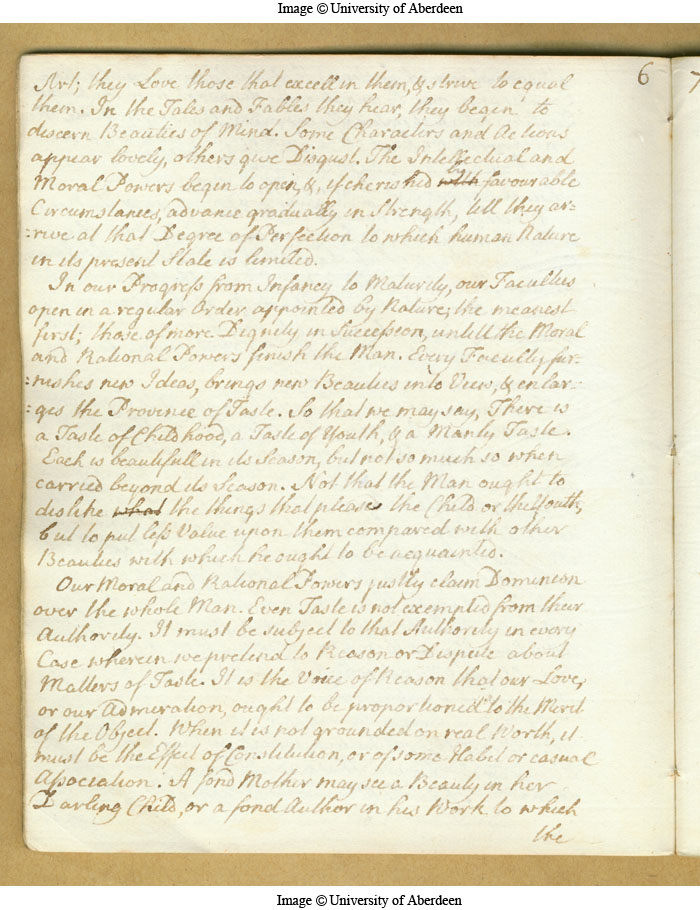 Image © University of Aberdeen
6
7
Art; they Love those that excell in them, & strive to equal
them. In the Tales and Fables they hear, they begin to
discern Beauties of Mind. Some Characters and Actions
appear lovely, others give Disgust. The Intellectual and
Moral Powers begin to open, &, if cherished by with favourable
Circumstances, advance gradually in Strength, till they ar-
:rive at that Degree of Perfection to which human Nature
in its present State is limited.
In our Progress from Infancy to Maturity, our Faculties
open in a regular Order appointed by Nature; the meanest
first; those of more Dignity in Succession, untill the Moral
and Rational Powers finish the Man. Every Faculty fur-
:nishes new Ideas, brings new Beauties into View, & enlar-
:ges the Province of Taste. So that we may say, There is
a Taste of Childhood, a Taste of Youth, & a Manly Taste.
Each is beautifull in its Season, but not so much so when
carried beyond its Season. Not that the Man ought to
dislike what the things that please the Child or the Youth,
but to put less Value upon them compared with other
Beauties with which he ought to be acquainted.
Our Moral and Rational Powers justly claim Dominion
over the whole Man. Even Taste is not exempted from their
Authority. It must be subject to that Authority in every
Case wherein we pretend to Reason or Dispute about
Matters of Taste. It is the Voice of Reason that our Love,
or our Admiration, ought to be proportioned to the Merit
of the Object. When it is not grounded on real Worth, it
must be the Effect of Constitution, or of some Habit or casual
Association. A fond Mother may see a Beauty in her
Darling Child, or a fond Author in his Work to which
the
Image © University of Aberdeen